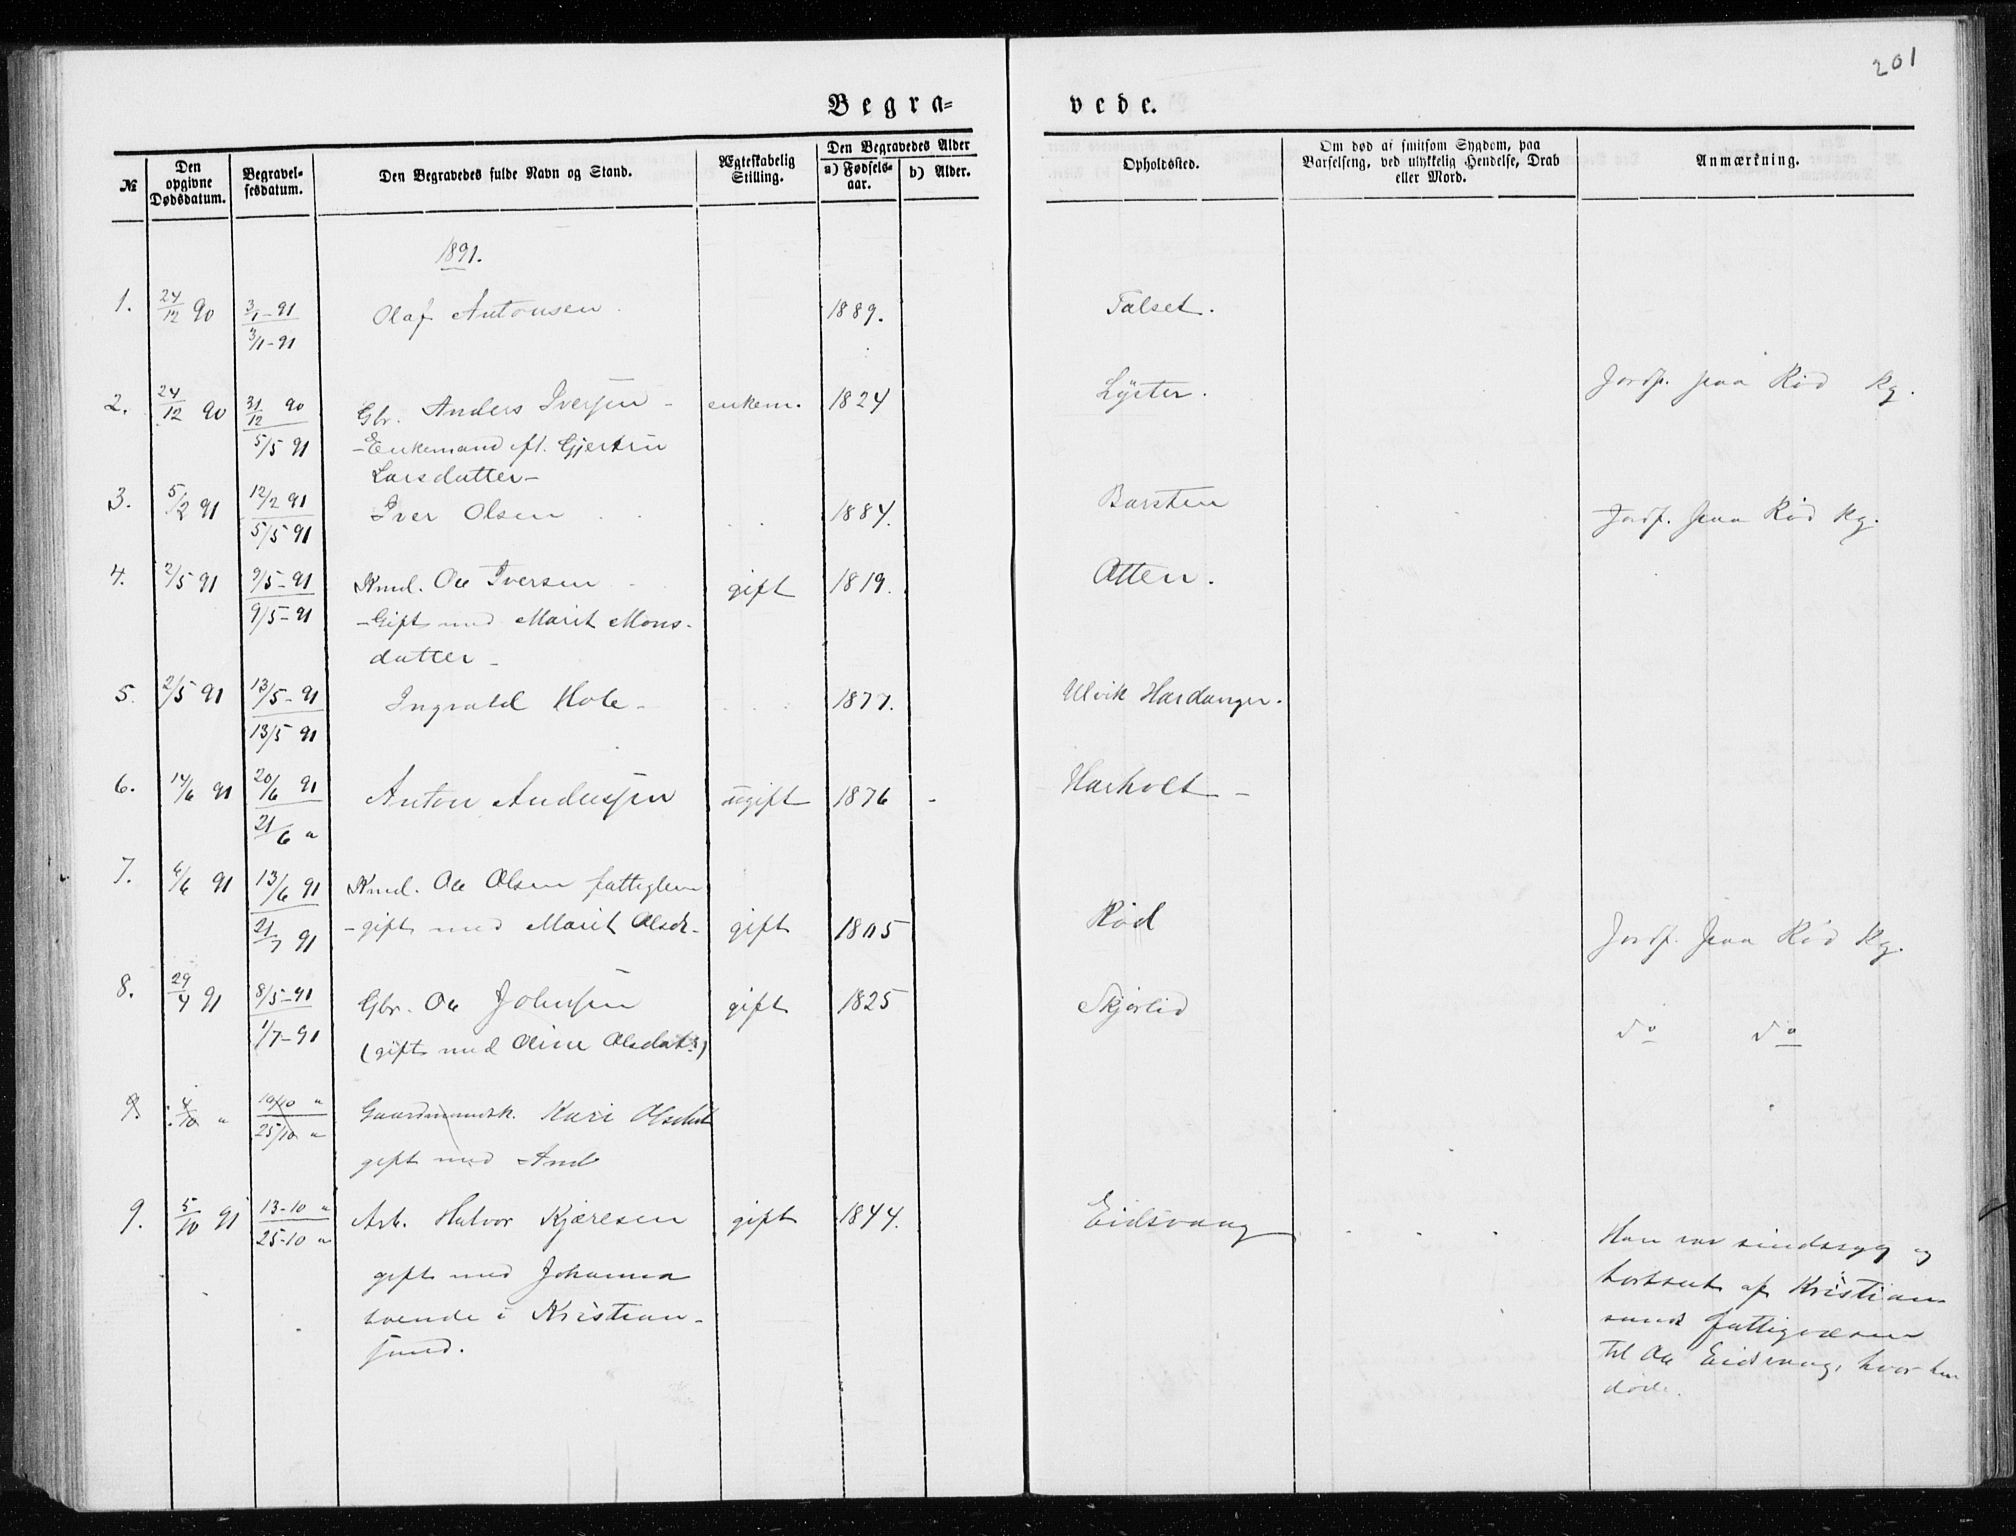 201
Begra= vede.
№
Den opgivne Dødsdatum.
Begravel- sesdatum.
Den Begravedes fulde Navn og Stand.
Ægteskabelig Stilling.
Den Begravedes Alder
a) Fødsels- aar.
b) Alder.
Opholdssted.
Om død af smitsom Sygdom, paa Barselseng, ved ulykkelig Hendelse, Drab eller Mord.
Anmærkning.
1891.
1. 24/12 90 3/1-91 Olaf Antonsen 1889. Talset.
3/1-91
2. 24/12 90 31/12 90 Gbr. Anders Iversen - enkem. 1824 Lyster. Jordf. paa Rød Kg.
5/5 91 - Enkemand eft. Gjertru
Larsdatter -
3. 5/2 91 12/2 91 Iver Olsen 1884. Barsten Jordf. paa Rød Kg.
5/5 91
4. 2/5 91 9/5-91 Kmd. Ole Iversen gift 1819. Atten.
9/5-91 - Gift med Marit Mons-
datter -
5. 2/5 91 13/5-91 Ingvald Hole - 1877. Ulvik Hardanger.
13/5 91
6. 14/6 91 20/6 91 Anton Anderssen ugift 1876 - Harholt -
21/6 "
7. 6/6 91 13/6 91 Kmd. Ole Olsen fattiglem
21/7 91 - gift med Marit Olsdr - gift 1805 Rød Jordf. paa Rød Kg.
8. 29/4 91 8/5-91 Gbr. Ole Johnsen gift 1825 Skjørlid do do
1/7-91 (gift med Oline Olsdatr)
9. 4/10 " 10/10 " Gaardmandsk. Kari Olsdat
25/10 " gift med And
9. 5/10 91 13-10 " Arb. Halvor Kjæresen gift 1844. Eidsvaag Han var sindssyg og
25-10 " gift med Johanna bortsat af Kristian
boende i Kristian- sunds fattigvæsen
sund. til Ole Eidsvaag, hvor han
døde.